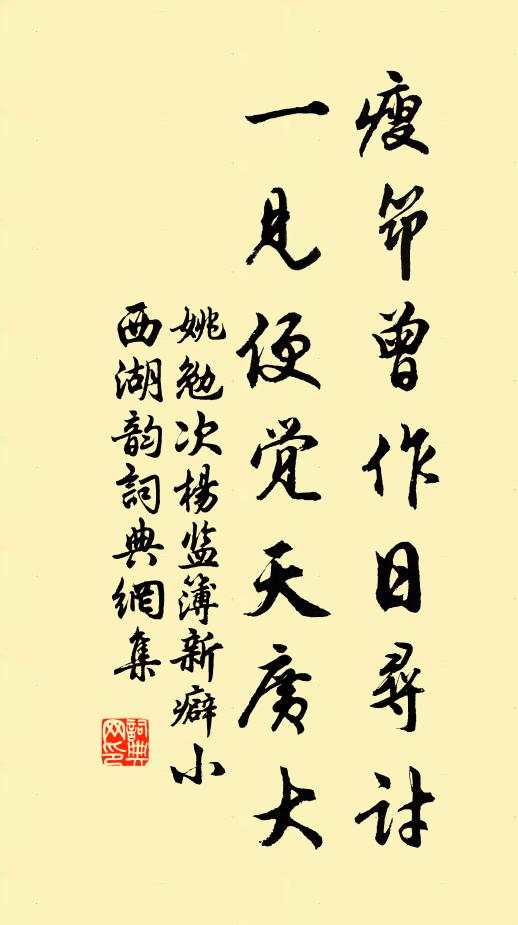 瘦筇曾作日尋討
一見便覺天廣大
姚勉次楊监簿新癖小
西湖韵詞典網集
詞典网印